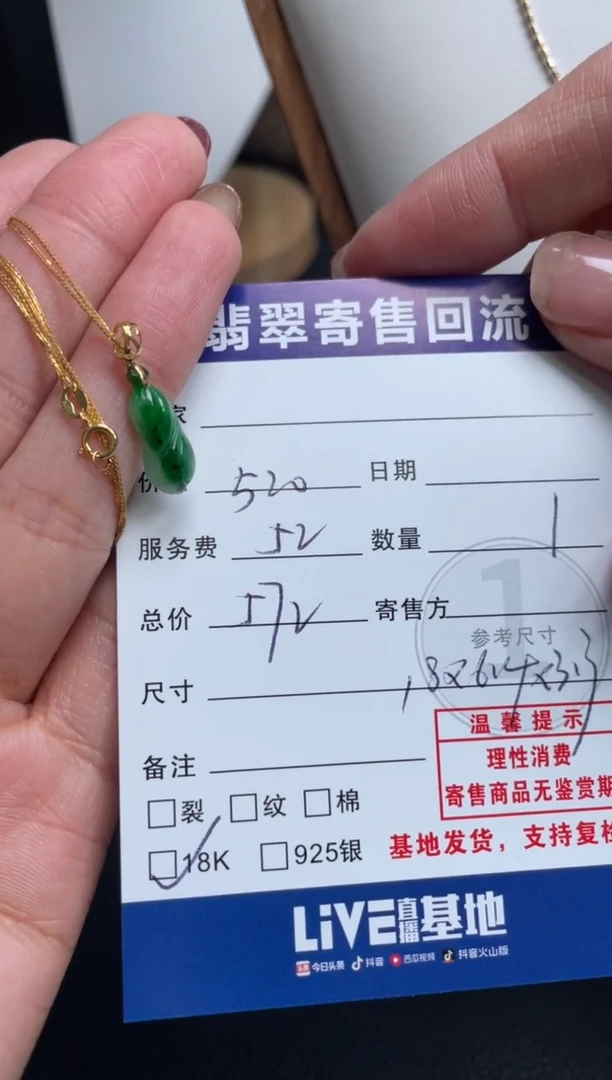 翡翠寄售回流
家
价 520 日期
服务费 52 数量 1
总价 572 寄售方
1
参考尺寸
尺寸
温馨提示
理性消费
寄售商品无鉴赏期
备注
裂 纹 棉
18K 925银
基地发货，支持复检
LiVE直播基地
头条 今日头条 抖音 西瓜视频 抖音火山版